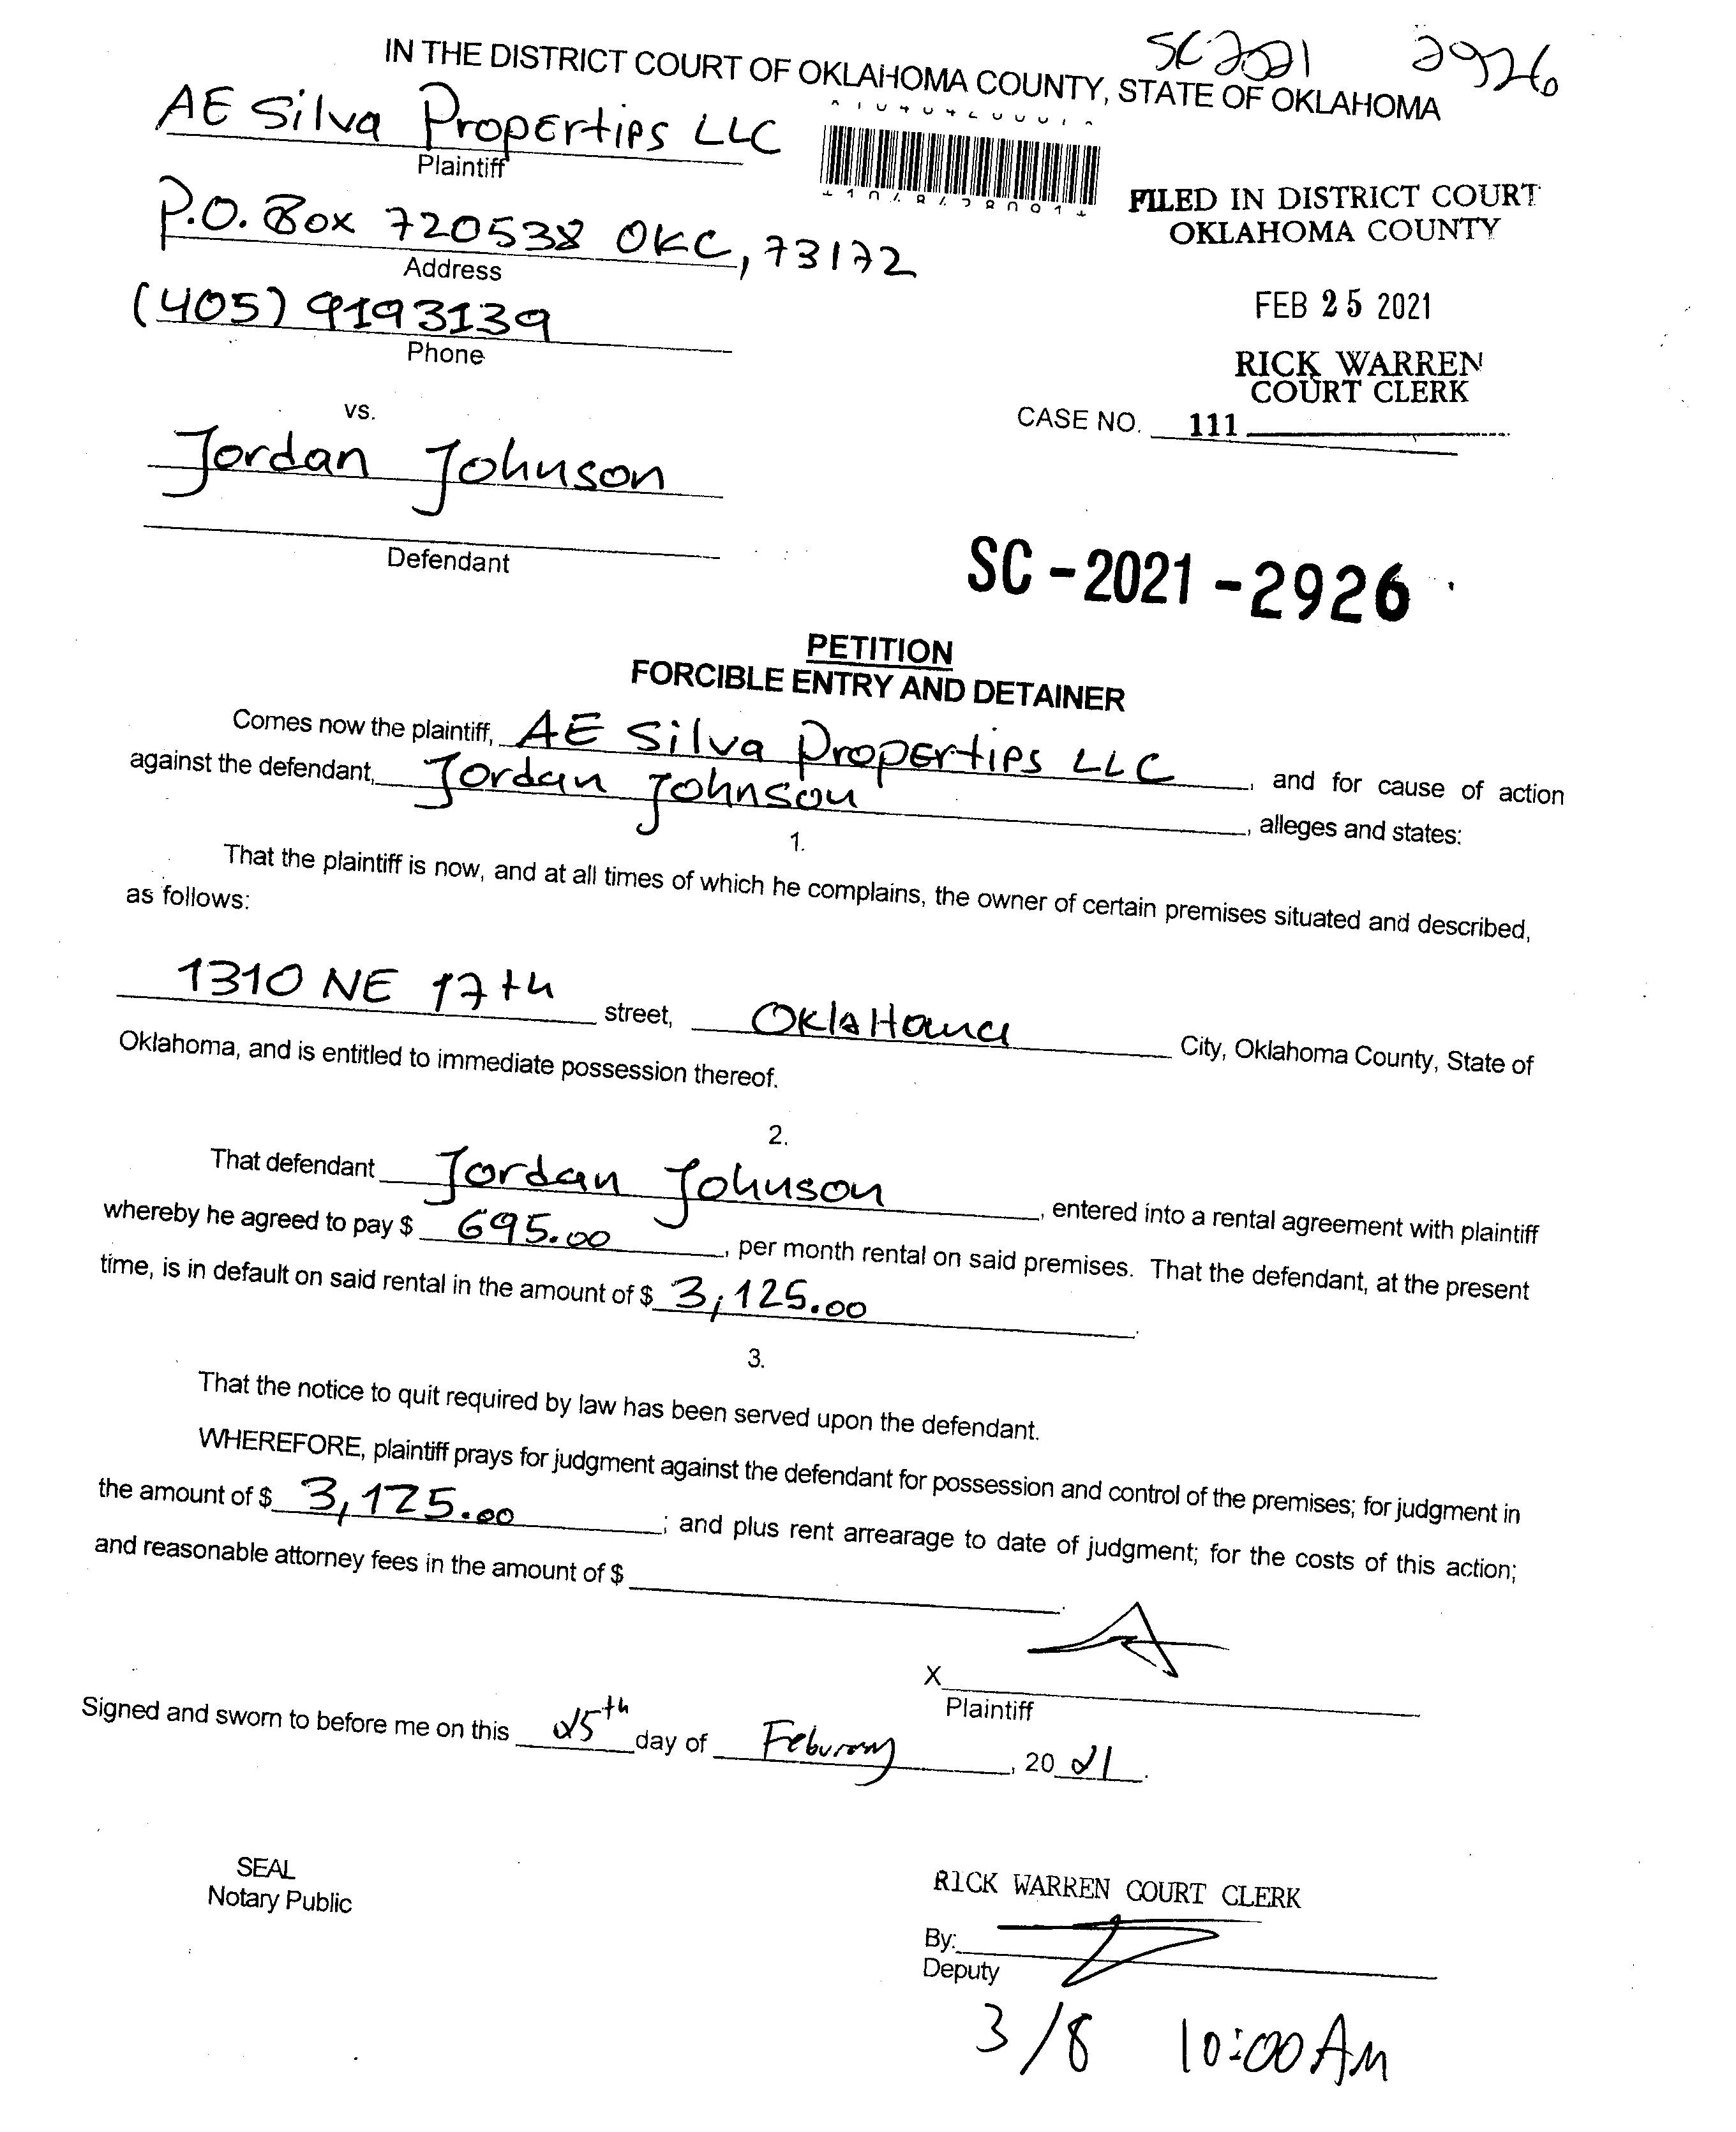 SC 2021 2926
IN THE DISTRICT COURT OF OKLAHOMA COUNTY, STATE OF OKLAHOMA
AE Silva Properties LLC
Plaintiff
P.O. Box 720538 OKC, 73172
Address
(405) 9193139
Phone
FILED IN DISTRICT COURT
OKLAHOMA COUNTY
FEB 25 2021
RICK WARREN
COURT CLERK
CASE NO. 111
vs.
Jordan Johnson
Defendant
SC-2021-2926
PETITION
FORCIBLE ENTRY AND DETAINER
Comes now the plaintiff, AE Silva Properties LLC, and for cause of action
against the defendant, Jordan Johnson, alleges and states:
1.
That the plaintiff is now, and at all times of which he complains, the owner of certain premises situated and described,
as follows:
1310 NE 17th street, OklaHoma City, Oklahoma County, State of
Oklahoma, and is entitled to immediate possession thereof.
2.
That defendant Jordan Johnson, entered into a rental agreement with plaintiff
whereby he agreed to pay $ 695.00, per month rental on said premises. That the defendant, at the present
time, is in default on said rental in the amount of $ 3,125.00.
3.
That the notice to quit required by law has been served upon the defendant.
WHEREFORE, plaintiff prays for judgment against the defendant for possession and control of the premises; for judgment in
the amount of $ 3,125.00; and plus rent arrearage to date of judgment; for the costs of this action;
and reasonable attorney fees in the amount of $.
X
Plaintiff
Signed and sworn to before me on this 25th day of Feburary, 2021.
SEAL
Notary Public
RICK WARREN COURT CLERK
By:
Deputy
3/8 10:00 AM